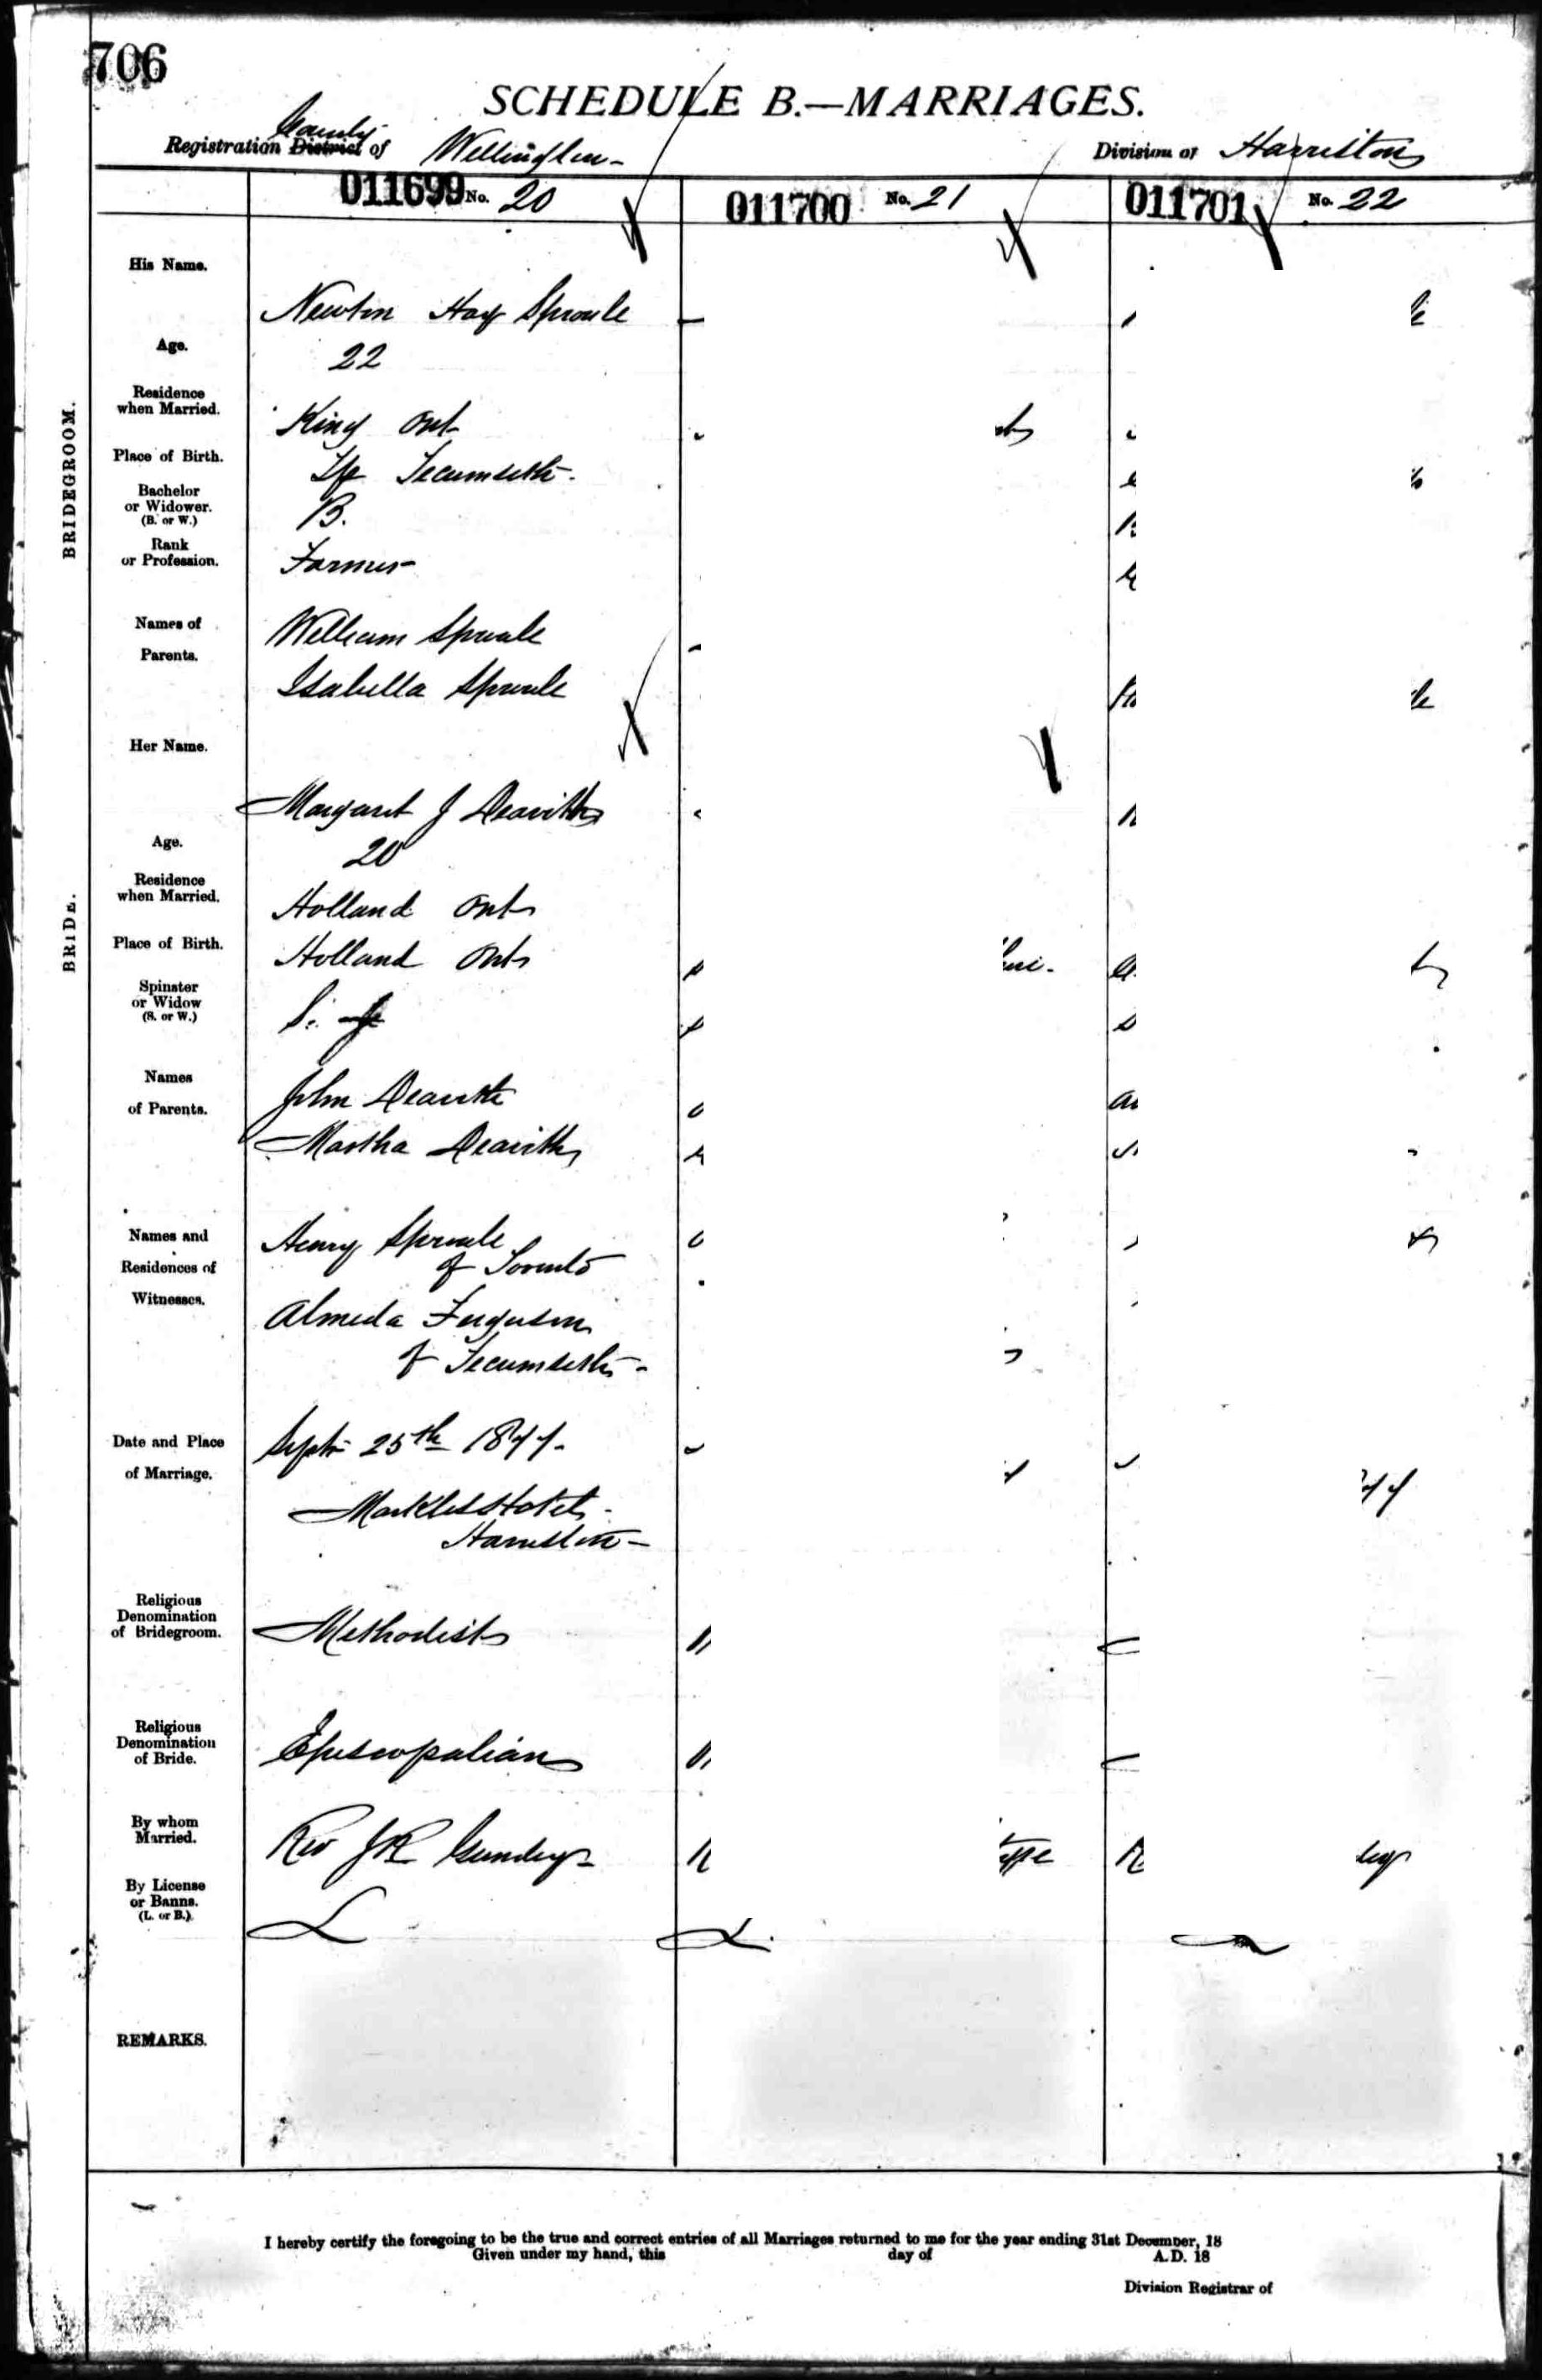 706
SCHEDULE B.—MARRIAGES.
County
Registration District of Wellington
Division of Harriston
011699 No. 20
011700 No. 21
011701 No. 22
BRIDEGROOM.
His Name.
Newton Hay Sproule
Age.
22
Residence
when Married.
King Ont
Place of Birth.
Tp Tecumseth
Bachelor
or Widower.
(B. or W.)
B.
Rank
or Profession.
Farmer
Names of
Parents.
William Sproule
Isabella Sproule
BRIDE.
Her Name.
Margaret J
Age.
20
Residence
when Married.
Holland Ont
Place of Birth.
Holland Ont
Spinster
or Widow
(S. or W.)
S.
Names
of Parents.
John
Martha
Names and
Residences of
Witnesses.
Henry Sproule
of Toronto
Almeda Ferguson
of Tecumseth
Date and Place
of Marriage.
Sept 25th
Hotel
Harriston
Religious
Denomination
of Bridegroom.
Methodist
Religious
Denomination
of Bride.
Episcopalian
By whom
Married.
Rev J R Gundy
By License
or Banns.
(L. or B.)
L L.
REMARKS.
I hereby certify the foregoing to be the true and correct entries of all Marriages returned to me for the year ending 31st December, 18
Given under my hand, this day of A.D. 18
Division Registrar of